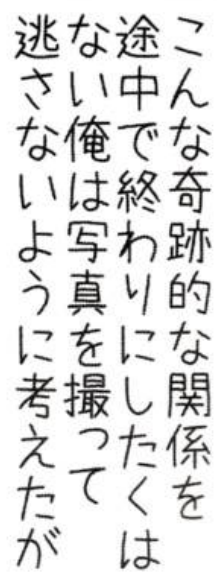 こんな奇跡的な関係を
途中で終わりにしたくは
ない俺は写真を撮って
逃さないように考えたが